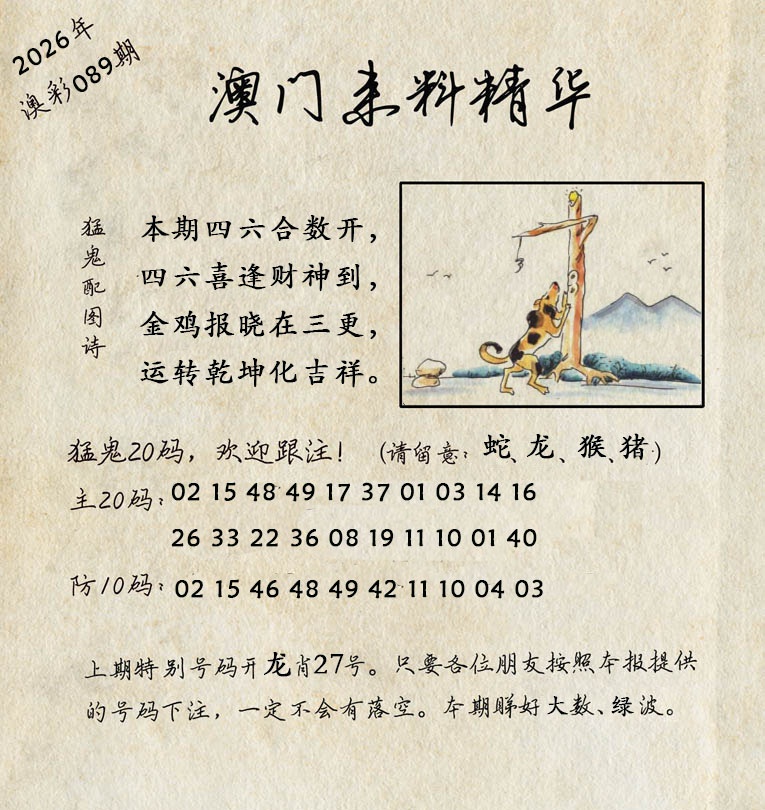 2026年
澳彩089期
澳门来料精华
猛鬼配图诗
本期四六合数开，
四六喜逢财神到，
金鸡报晓在三更，
运转乾坤化吉祥。
猛鬼20码，欢迎跟注！（请留意：蛇、龙、猴、猪）
主20码：02 15 48 49 17 37 01 03 14 16
26 33 22 36 08 19 11 10 01 40
防10码：02 15 46 48 49 42 11 10 04 03
上期特别号码开龙肖27号。只要各位朋友按照本报提供
的号码下注，一定不会有落空。本期睇好大数、绿波。